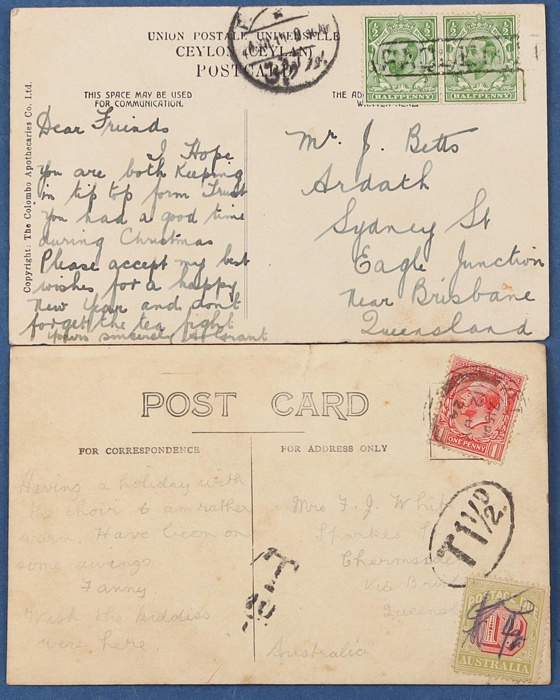 UNION POSTALE UNIVERSELLE
CEYLON (CEYLAN)
POSTCARD
THIS SPACE MAY BE USED
FOR COMMUNICATION.
THE AD
HALFPENNY
HALFPENNY
Copyright: The Colombo Apothecaries Co. Ltd.
Dear Friends
I Hope
you are both keeping
in tip top form Trust
you had a good time
during Christmas
Please accept my best
wishes for a happy
New Year and don't
forget the tea fight
yours sincerely Grant
Mr. J. Betts
Ardath
Sydney St
Eagle Junction
near Brisbane
Queensland
POST CARD
FOR CORRESPONDENCE
FOR ADDRESS ONLY
ONE PENNY 1
Having a holiday with
the choir & am rather
warm. Have been on
some
Fanny
Wish the kiddies
were here
Mrs F. J.
Sparkes
Chermside
Via
Australia
T 1½D
T
POSTAGE
AUSTRALIA